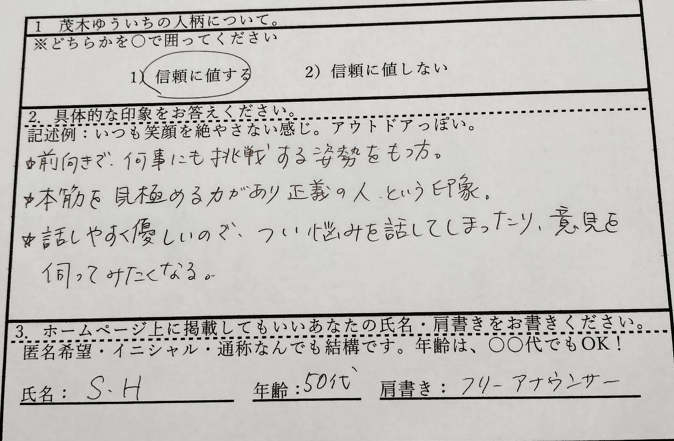 1 茂木ゆういちの人柄について。
※どちらかを〇で囲ってください
1) 信頼に値する 2) 信頼に値しない
2. 具体的な印象をお答えください。
記述例：いつも笑顔を絶やさない感じ。アウトドアっぽい。
☆前向きで、何事にも挑戦する姿勢をもつ方。
☆本筋を見極める力があり正義の人、という印象。
☆話しやすく優しいので、つい悩みを話してしまったり、意見を
伺ってみたくなる。
3. ホームページ上に掲載してもいいあなたの氏名・肩書きをお書きください。
匿名希望・イニシャル・通称なんでも結構です。年齢は、〇〇代でもOK！
氏名： S.H 年齢：50代 肩書き： フリーアナウンサー